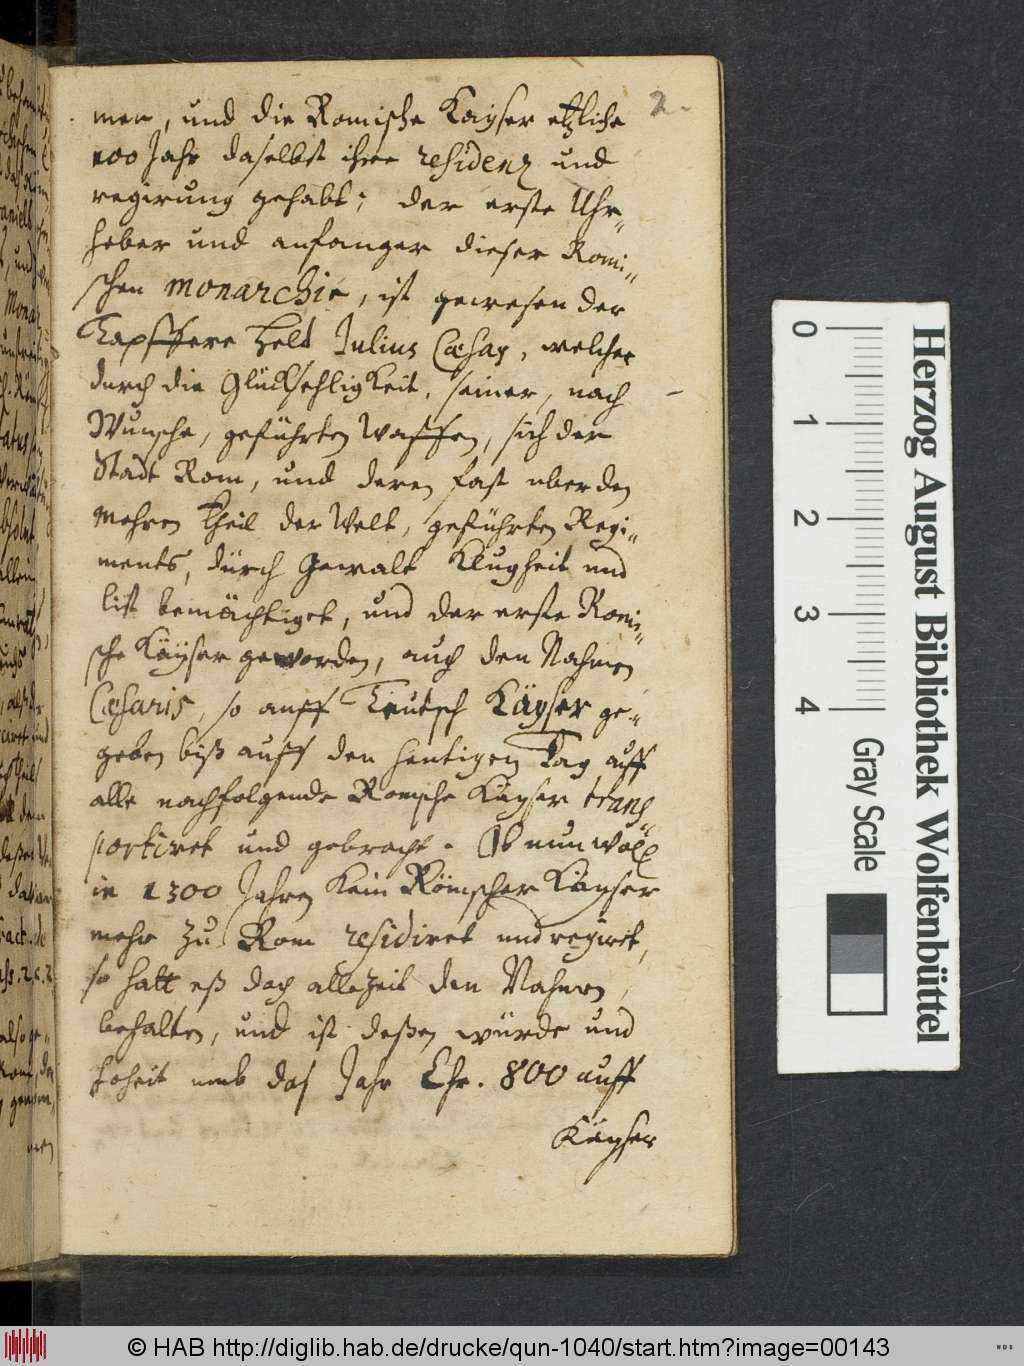 2.
men, und die Romische Kayser etzliche
100 Jahr daselbst ihre residenz und
regirung gehabt; der erste Uhr-
heber und anfanger dieser Romi-
schen monarchie, ist gewesen der
Tapffere Helt Julius Cæsar, welcher
durch die Glückseeligkeit, seiner, nach
Wunsche, geführten Waffen, sich der
Stadt Rom, und deren fast uber den
mehren Theil der Welt, geführten Regi-
ments, dürch Gewalt Klugheit und
list bemächtiget, und der erste Romi-
sche Käyser geworden, auch den Nahmen
Cæsaris, so auff Teutsch Käyser ge-
geben biß auff den heutigen Tag auff
alle nachfolgende Romische Käyser trans-
portiret und gebracht. Ob nun woll
in 1300 Jahren kein Römscher Käyser
mehr zu Rom residiret und regiret,
so hatt eß doch allezeit den Nahmen
behalten, und ist deßen würde und
hoheit umb das Jahr Chr. 800 auff
Käyser
Herzog August Bibliothek Wolfenbüttel
0 1 2 3 4
Gray Scale
© HAB http://diglib.hab.de/drucke/qun-1040/start.htm?image=00143